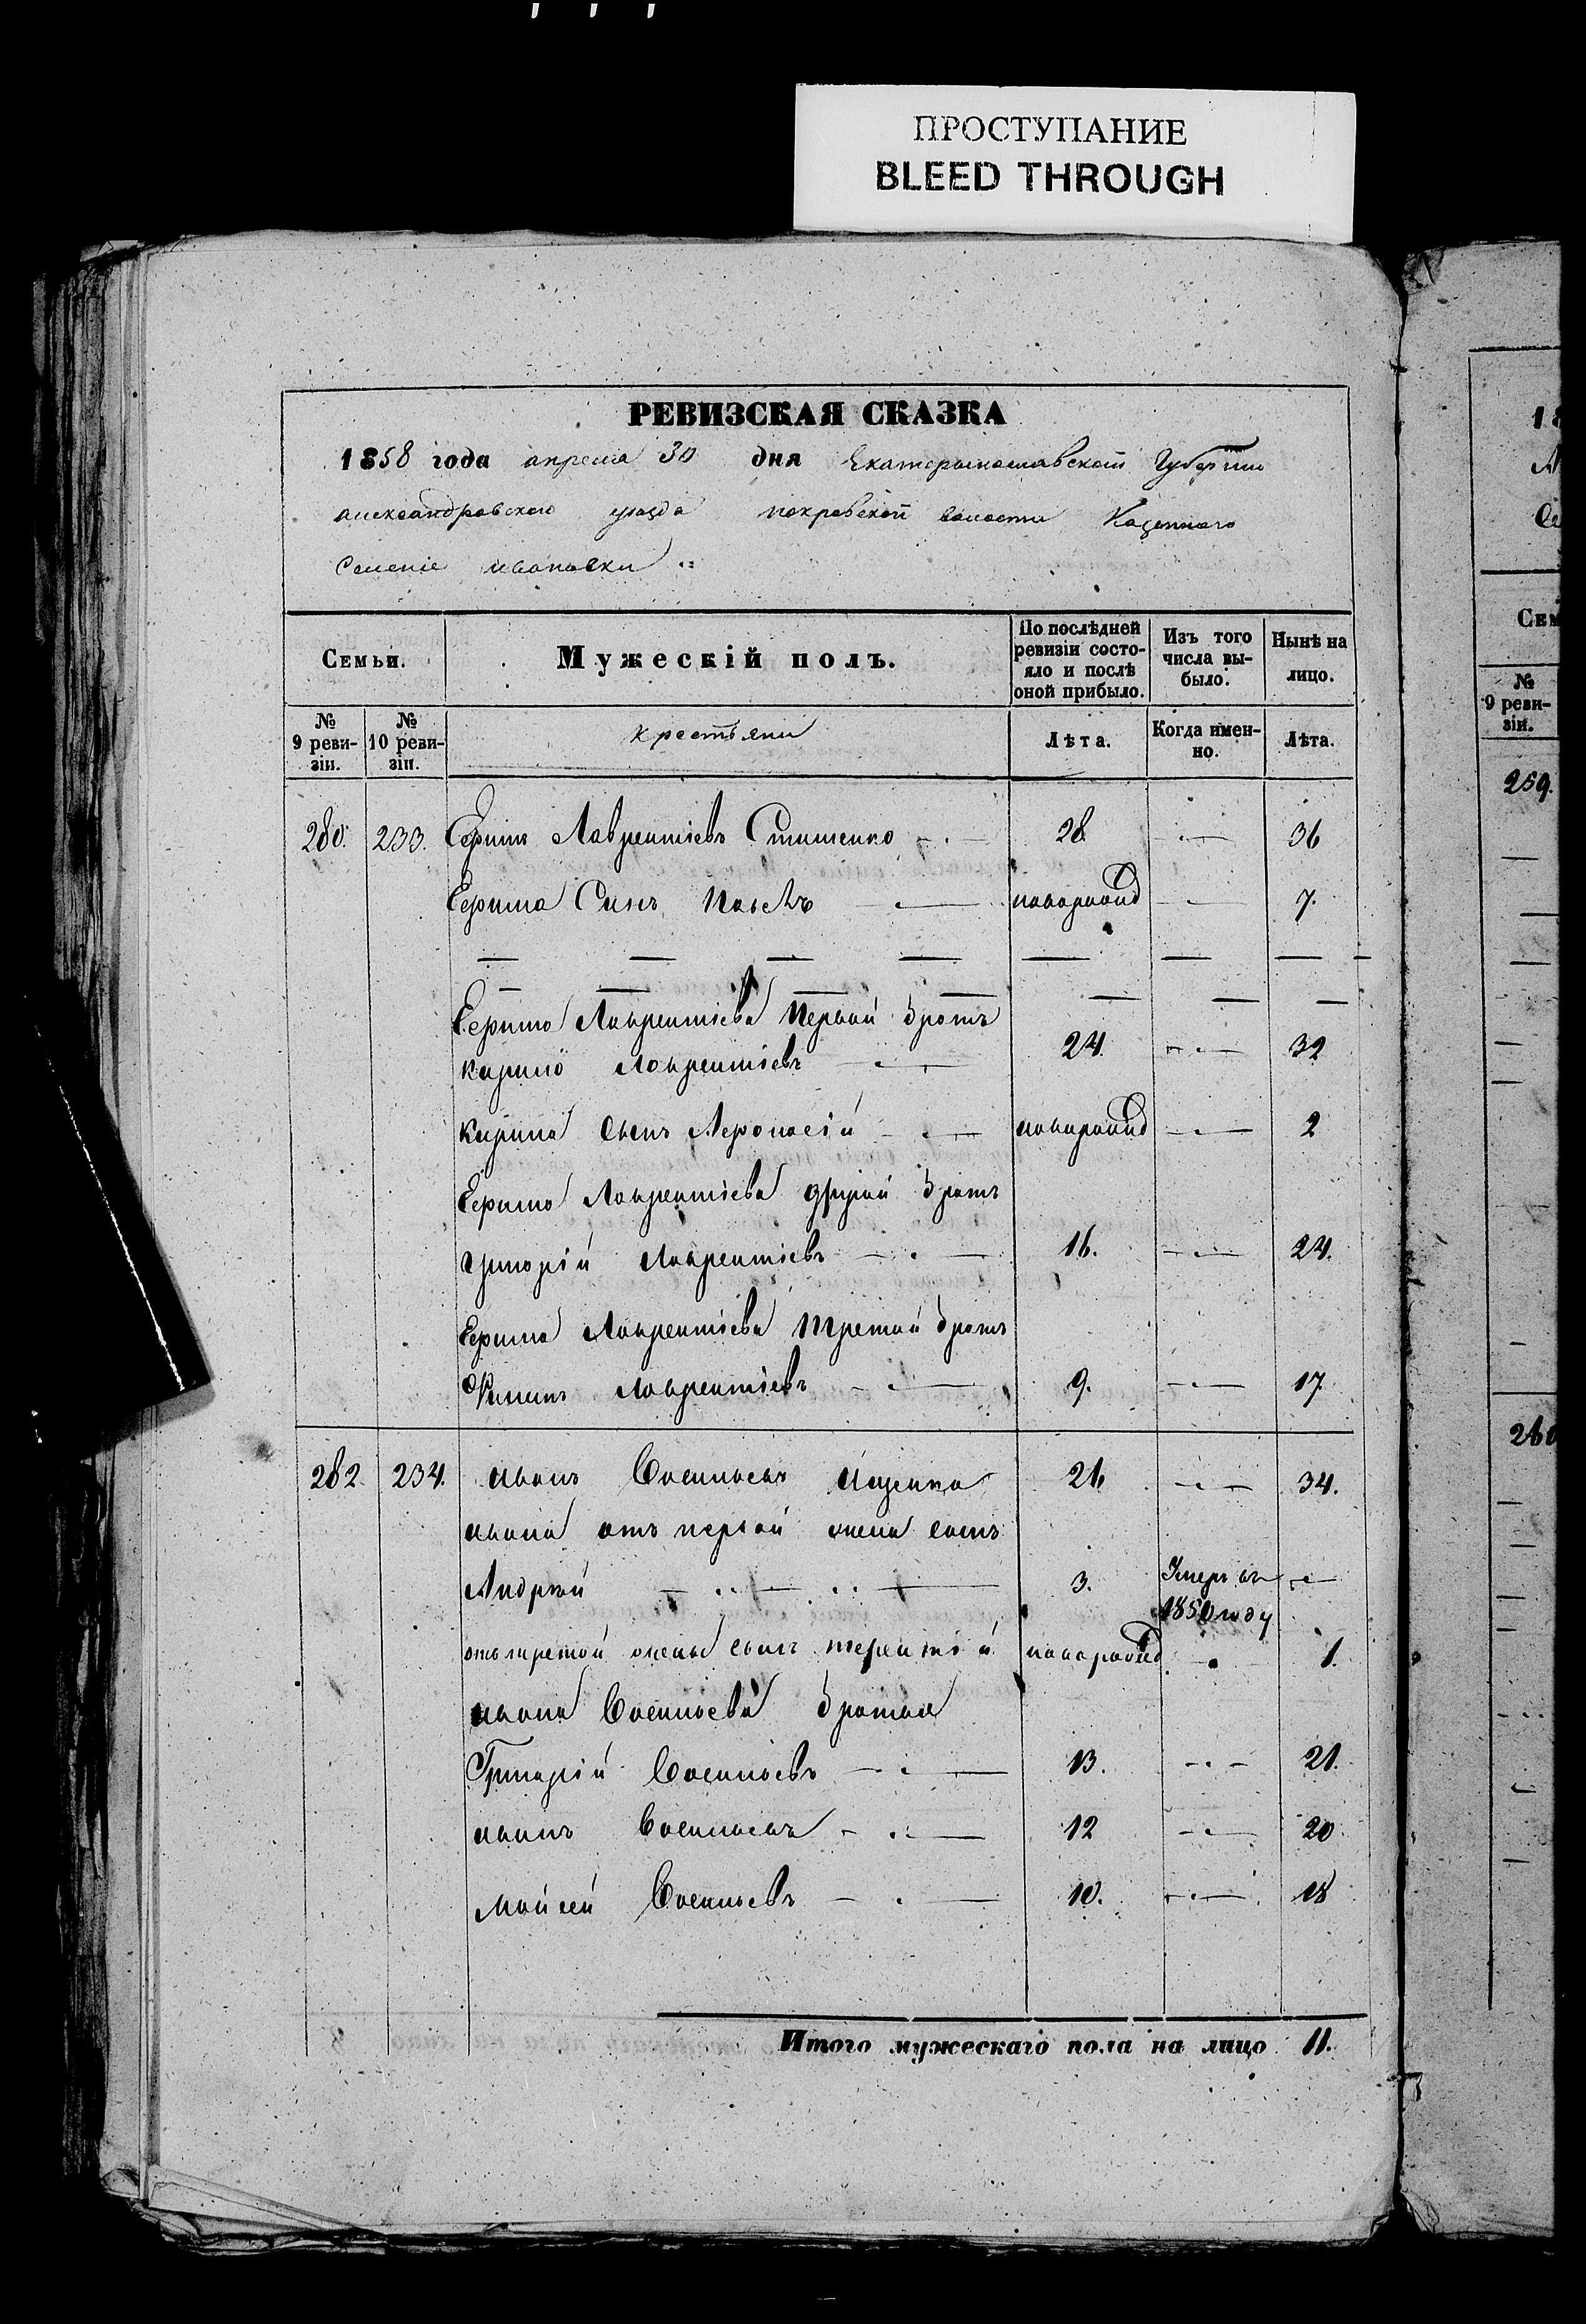 ПРОСТУПАНИЕ
BLEED THROUGH
РЕВИЗСКАЯ СКАЗКА
1858 года апреля 30 дня Екатеринославской Губернии
Александровского уезда покровской волости Казенного
Селение ивановки
Семьи. Мужескій полъ. По послѣдней ревизіи состояло и послѣ оной прибыло. Изъ того числа выбыло. Нынѣ на лицо.
№ 9 ревизіи. № 10 ревизіи. крестьяни Лѣта. Когда именно. Лѣта.
280. 233. Лаврентіевъ 28 36
Сынъ Павелъ новорожд 7.
Лаврентіева Первый братъ
Кирило Лаврентіевъ 24. 32
Кирила сынъ новорожд 2
Лаврентіева другий братъ
Григорій Лаврентіевъ 16. 24.
Лаврентіева Третий братъ
Лаврентіевъ 9. 17
282. 234. иванъ Васильевъ Ищенко 26 34.
ивана отъ первой жены сынъ
Андрей 3. Умеръ въ
1850 году
отъ третой жены сынъ терентій новорожд 1.
ивана Васильева братья
Григорій Васильевъ 13. 21.
иванъ Васильевъ 12 20
Мойсей Васильевъ 10. 18
Итого мужескаго пола на лицо 11.
18
Сем
№ 9 ревизіи.
259.
260